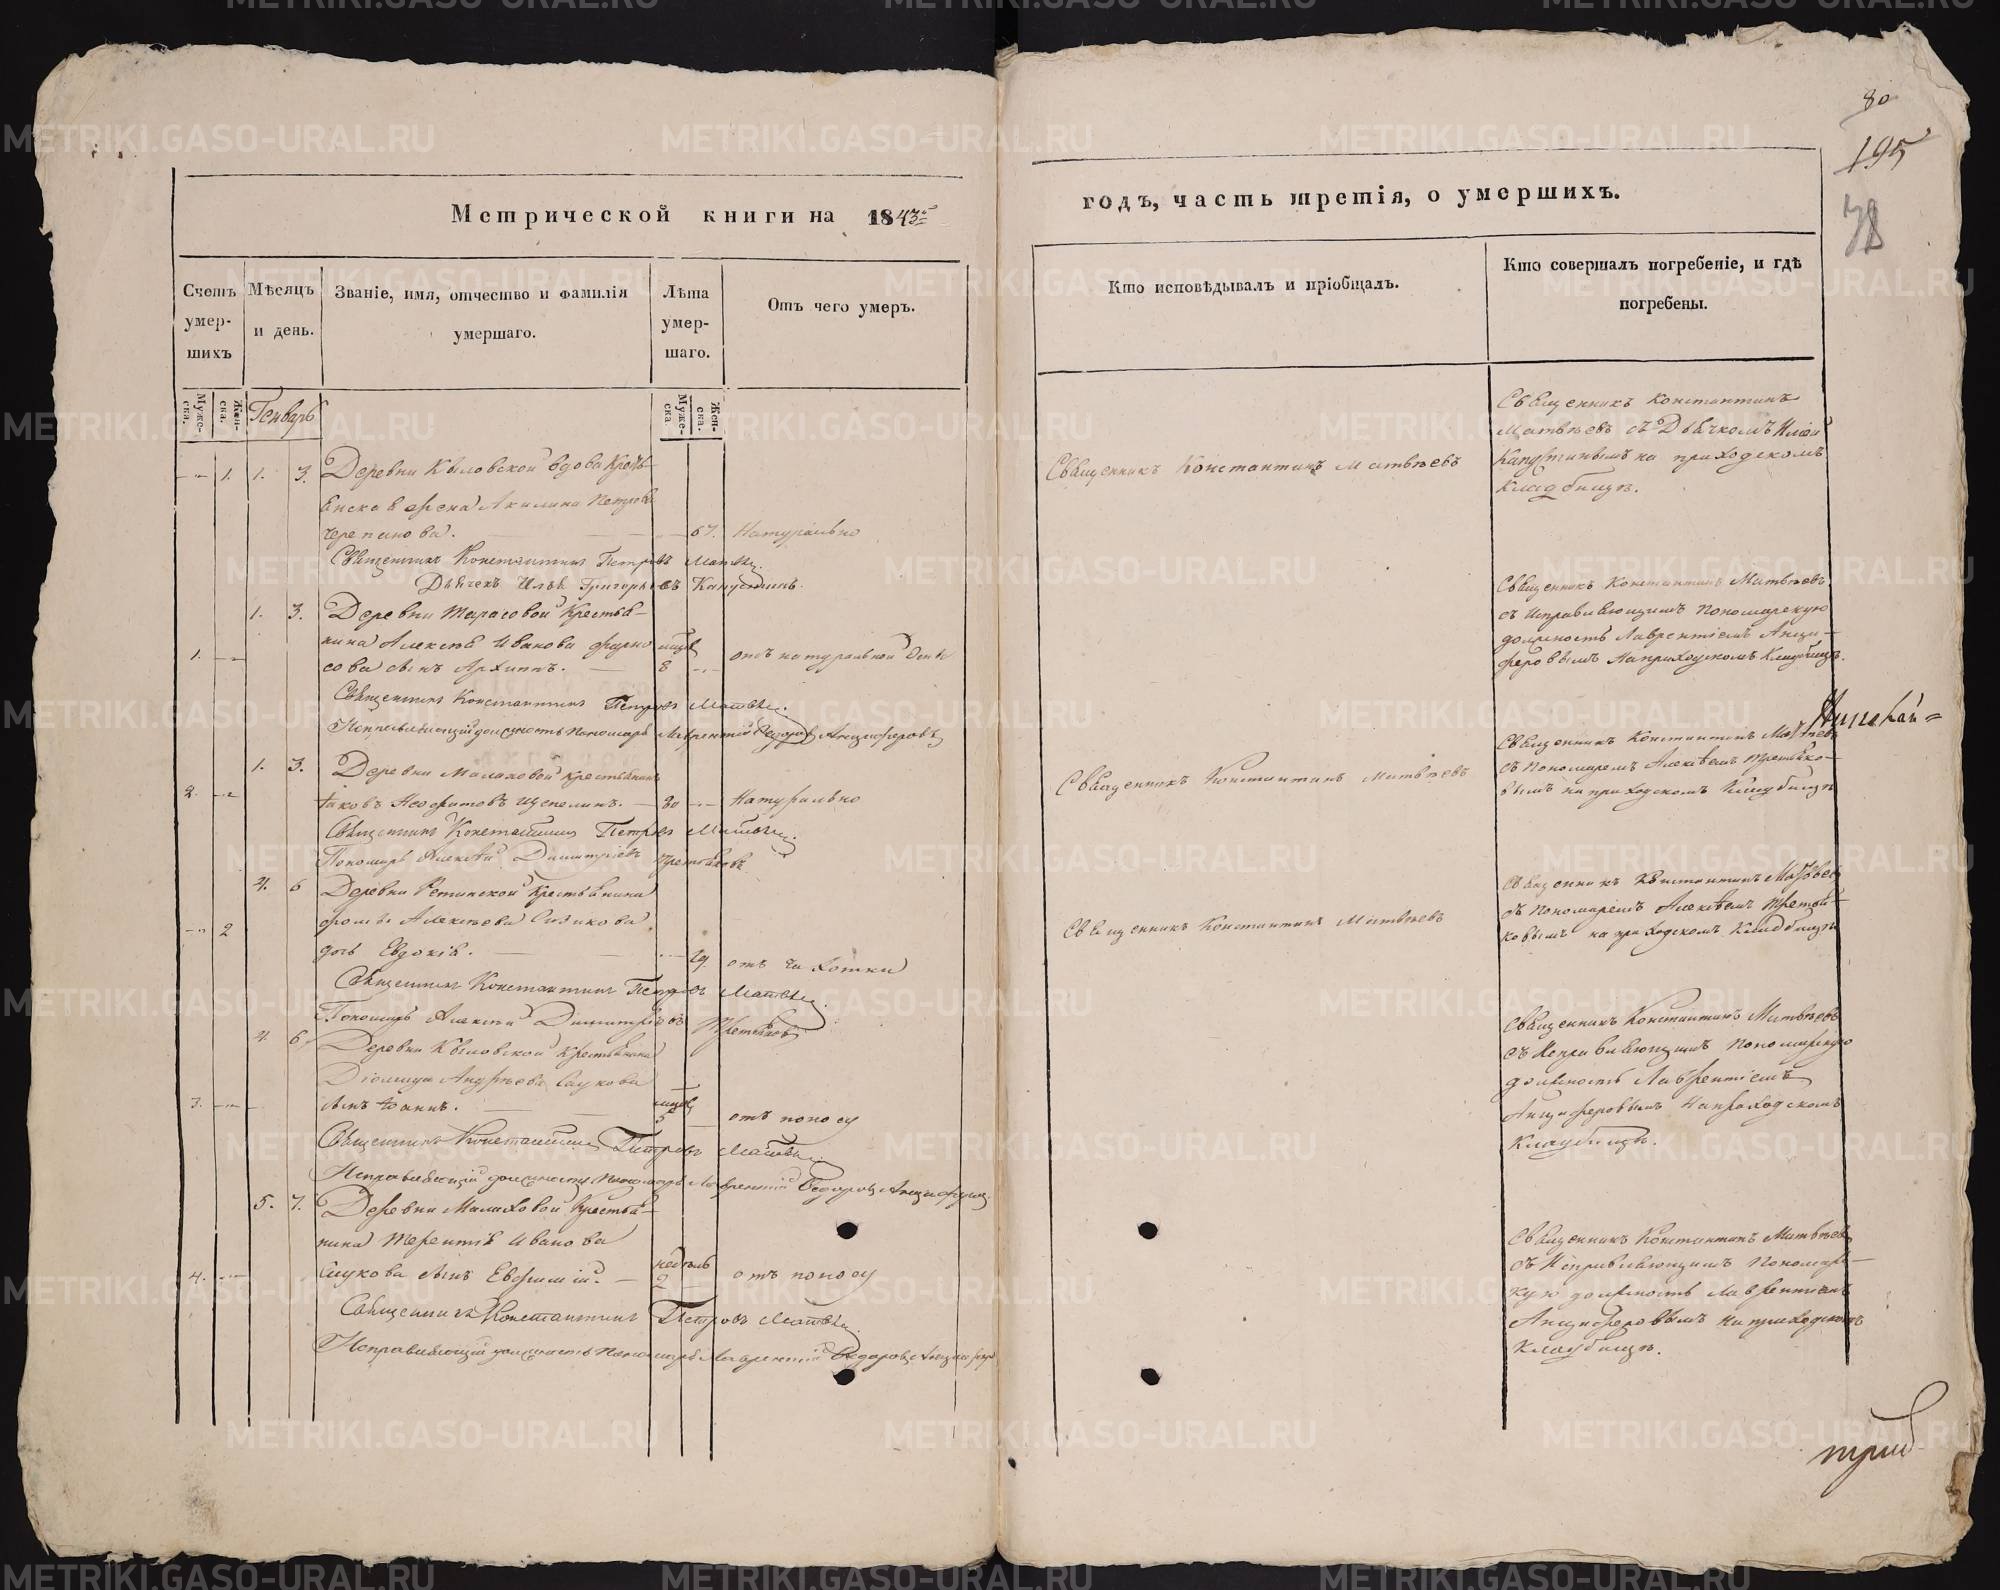 80
195
Метрической книги на 1843й
годъ, часть третія, о умершихъ.
Счетъ умер-шихъ
Мѣсяцъ и день.
Званіе, имя, отчество и фамилія умершаго.
Лѣта умер-шаго.
Отъ чего умеръ.
Кто исповѣдывалъ и пріобщалъ.
Кто совершалъ погребеніе, и гдѣ погребены.
Муже-ска.
Жен-ска.
Генварь
Муже-ска.
Жен-ска.
1. 1. 3. Деревни Кыловской вдова Кресть-
Акилина Петрова
Черепанова. 67. Натурально
Священникъ Константинъ Петровъ Матвѣевъ
Дьячекъ Илья Григорьевъ Капустинъ.
Священникъ Константинъ Матвѣевъ
Священникъ Константинъ
Матвѣевъ съ Дьячкомъ Иліей
Капустинымъ на приходскомъ
кладбищѣ.
1. 3. Деревни Тарасовой Крестья-
нина Алексѣя Иванова
1. сынъ Архиппъ. 8 отъ натуральной
Священникъ Константинъ Петровъ Матвѣевъ.
Исправляющій должность Пономаря Лаврентій Федоровъ Анциферовъ
Священникъ Константинъ Матвѣевъ
съ Исправляющимъ Пономарскую
должность Лаврентіемъ Анци-
феровымъ на приходскомъ Кладбищѣ.
1. 3. Деревни Малаховой крестьянинъ
2. Іаковъ 30 Натурально
Священникъ Константинъ Петровъ Матвѣевъ.
Пономарь Алексѣй Димитріевъ Третьяковъ
Священникъ Константинъ Матвѣевъ
Священникъ Константинъ Матвѣевъ
съ Пономаремъ Алексѣемъ Третьяко-
вымъ на приходскомъ Кладбищѣ
4. 6 Деревни Ретинской Крестьянина
2 Алексѣева Сизикова
дочь Евдокія. 19. отъ чахотки
Священникъ Константинъ Петровъ Матвѣевъ.
Пономарь Алексѣй Димитріевъ Третьяковъ
Священникъ Константинъ Матвѣевъ
Священникъ Константинъ Матвѣевъ
съ Пономаремъ Алексѣемъ Третья-
ковымъ на приходскомъ Кладбищѣ
4. 6. Деревни Кыловской Крестьянина
Діомида Андреева Саукова
3. сынъ Іоаннъ. 5 отъ поносу
Священникъ Константинъ Петровъ Матвѣевъ
Исправляющій должность Пономаря Лаврентій Федоровъ Анциферовъ
Священникъ Константинъ Матвѣевъ
съ Исправляющимъ Пономарскую
должность Лаврентіемъ
Анциферовымъ на приходскомъ
Кладбищѣ.
5. 7. Деревни Малаховой Крестья-
нина Терентія Иванова
4. Саукова сынъ Евфимій. недѣль 2 отъ поносу
Священникъ Константинъ Петровъ Матвѣевъ.
Исправляющій должность Пономаря Лаврентій Федоровъ
Священникъ Константинъ Матвѣевъ
съ Исправляющимъ Пономар-
скую должность Лаврентіемъ
Анциферовымъ на приходскомъ
Кладбищѣ.